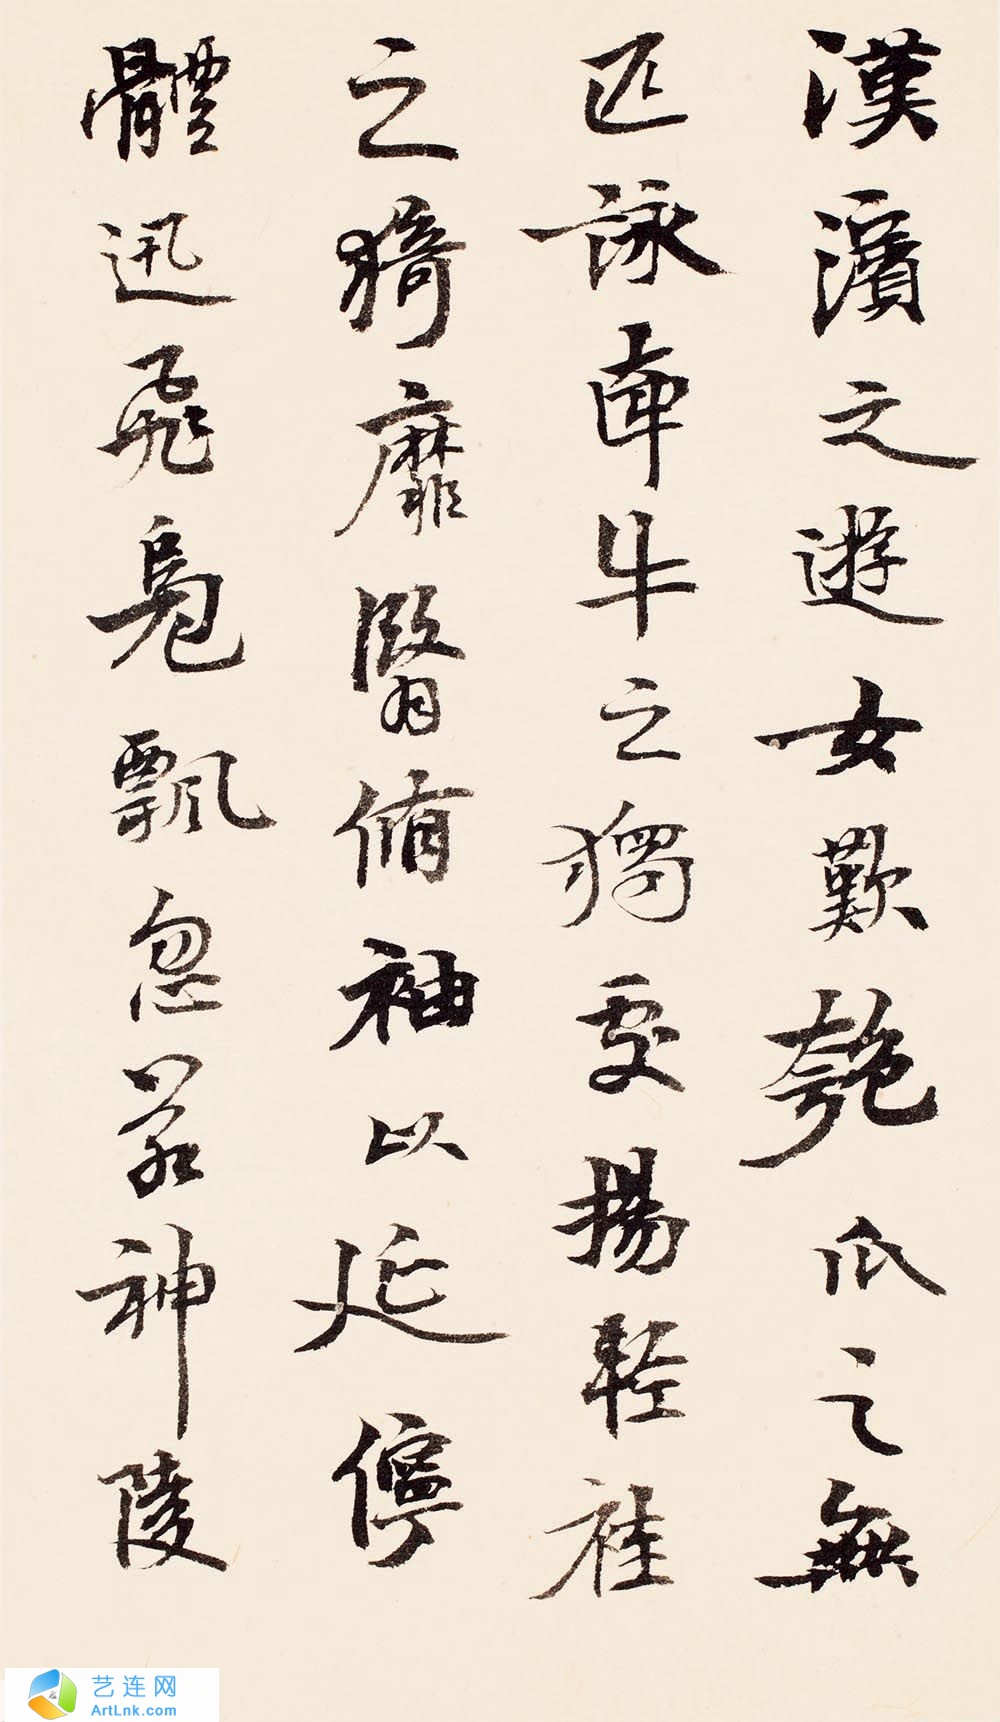 漢濱之遊女歎匏瓜之無
匹詠牽牛之獨處揚輕袿
之猗靡翳脩袖以延佇
體迅飛鳧飄忽若神陵
艺连网
ArtLnk.com